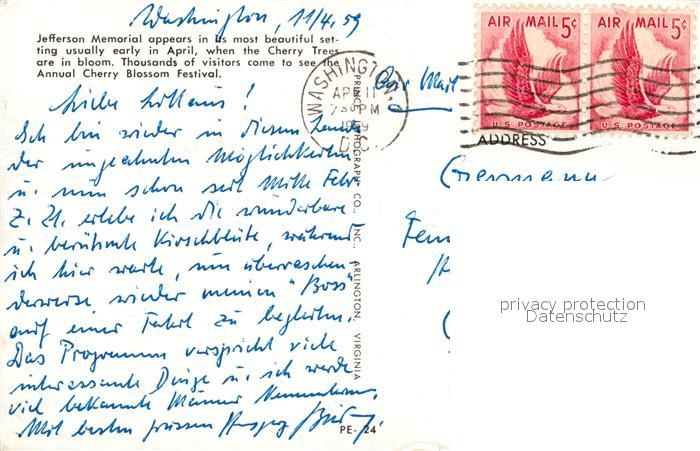 Washington, 11/4.59
Jefferson Memorial appears in its most beautiful set-
ting usually early in April, when the Cherry Trees
are in bloom. Thousands of visitors come to see the
Annual Cherry Blossom Festival.
Liebe
Ich bin wieder in diesem Lande
der ungeahnten Möglichkeiten
u. nun schon seit Mitte Febr.
Z. Zt. erlebe ich die wunderbare
u. berühmte Kirschblüte, während
ich hier warte, um überraschen-
derweise wieder meinen "Boss"
auf einer Fahrt zu begleiten.
Das Programm verspricht viele
interessante Dinge u. ich werde
viel bekannte Männer
Mit besten Grüssen
PE- 24
PRINCE LITHOGRAPH CO., INC., ARLINGTON, VIRGINIA
WASHINGTON, D.C.
APR 11
PM
1959
Air Mail
AIR MAIL 5¢
U.S. POSTAGE
AIR MAIL 5¢
U.S. POSTAGE
ADDRESS
Germany
privacy protection
Datenschutz